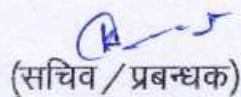 (सचिव / प्रबन्धक)